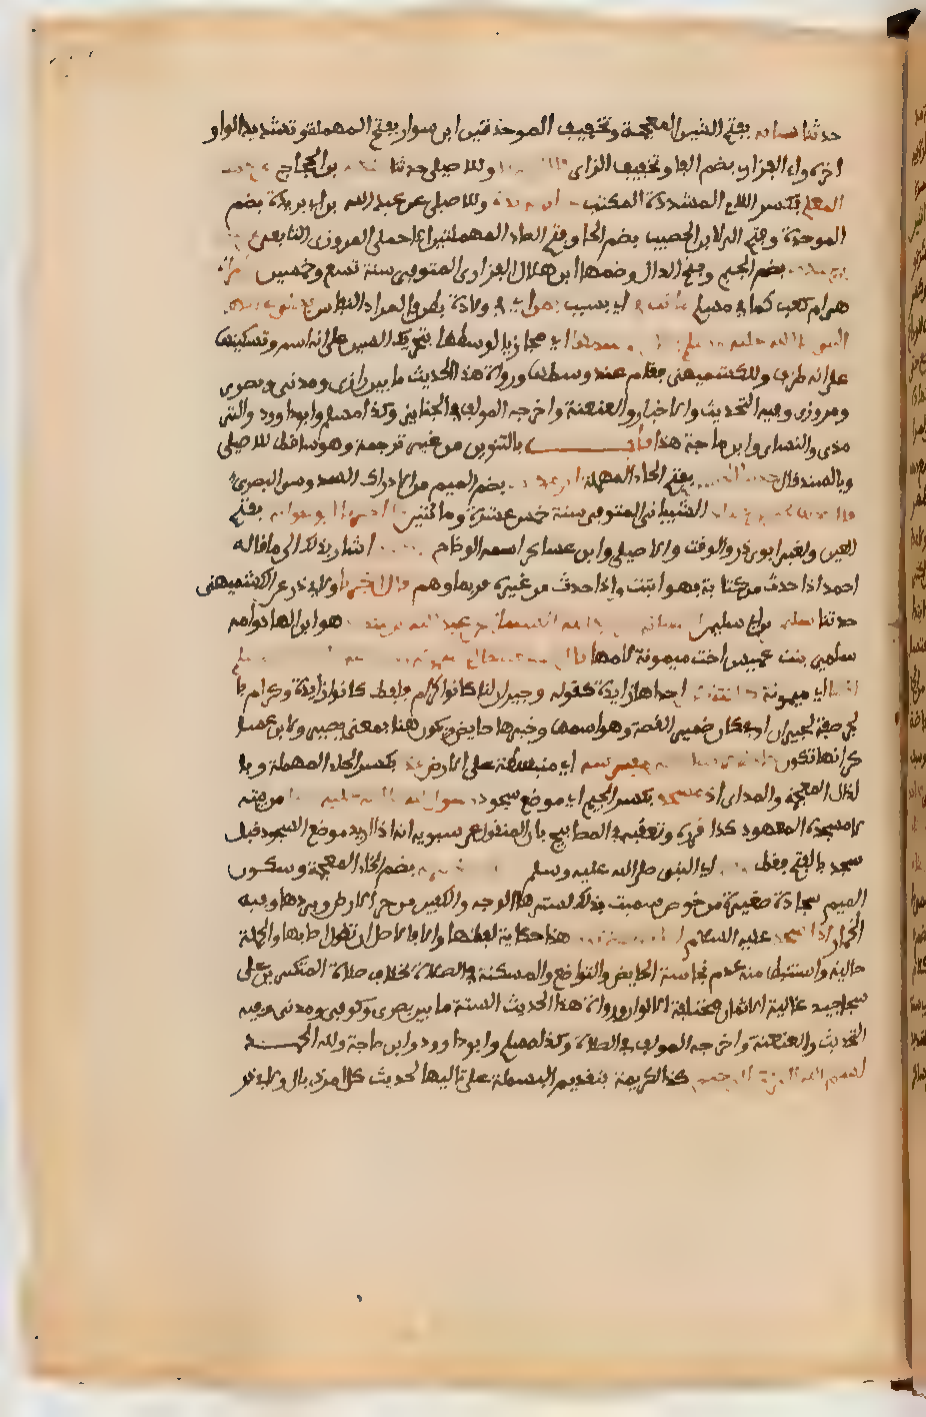 حدثنا شبابة بفتح الشين المعجمة وتخفيف الموحدتين ابن سوار بفتح المهملة وتشديد الواو
اخره راء الفزاري بضم الفا وتخفيف الزاى وللاصيلي حدثنا بن الحجاج
المعلم بكسر اللام المشددة المكتب ابن بريدة وللاصيلي عن عبد الله بن بريدة بضم
الموحدة وفتح الرا ابن الحصيب بضم الحا وفتح الصاد المهملتين الاسلمي المروزى التابعي
بضم الجيم وفتح الدال وضمها ابن هلال الفزارى المتوفى سنة تسع وخمسين
هي ام كعب كما في مسلم ماتت في اي بسبب بطن اي في ولادة بطن والمراد النفاس
النبي صلى الله عليه وسلم وسطها اي محاذيا لوسطها بتحريك السين على انه اسم وتسكينها
على انه ظرف وللكشميهني فقام عند وسطها ورواة هذا الحديث ما بين رازى ومدني وبصرى
ومروزى وفيه التحديث والاخبار والعنعنة واخرجه المولف في الجنايز وكذا مسلم وابو داوود والتر
مذى والنساى وابن ماجة هذا باب بالتنوين من غير ترجمة وهو ساقط للاصيلي
وبالسند قال حدثنا الحسن بفتح الحاء المهملة ابن مدرك بضم الميم من الادراك السدوسي البصرى
الشيباني المتوفى سنة خمس عشرة ومائتين ابو عوانة بفتح
العين ولغير ابوى ذر والوقت والاصيلي وابن عساكر اسمه الوضاح اشار بذلك الى ما قاله
احمد اذا حدث من كتابه فهو اثبت واذا حدث من غيره فربما وهم قال اخبرنا ولابي ذر عن الكشميهني
حدثنا سليمان بن ابي سليمان عن عبد الله بن شداد هو ابن الهاد وامه
سلمى بنت عميس اخت ميمونة لامها
ميمونة كانت تكون احداها زايدة كقوله وجيران لنا كانوا كرام فلفظ كانوا زايدة وكرام با
لجر صفة لجيران او في كان ضمير القصة وهو اسمها وخبرها حايض وتكون هنا بمعنى تصير ولابن عسا
كر انها تكون وهي مفترشة اي منبسطة على الارض بحذاء بكسر الحاء المهملة وبا
لذال المعجمة والمد اى ازاء مسجد بكسر الجيم اي موضع سجود رسول الله صلى الله عليه وسلم من بيته
لا مسجده المعهود كذا قرره وتعقبه في المصابيح بان المنقول عن سبويه انه اذا اريد موضع السجود قيل
سجد بالفتح فقط اي النبي صلى الله عليه وسلم بضم الخاء المعجمة وسكون
الميم سجادة صغيرة من خوص سميت بذلك لسترها الوجه والكفين من حر الارض وبردها ومنه
الخمار اذا سجد عليه السلام هذا حكاية لفظها والا فالاصل ان تقول اصابها والجملة
حالية واستنبط منه عدم نجاسة الحايض والتواضع والمسكنة في الصلاة بخلاف صلاة المتكبرين على
سجاجيد غالية الاثمان مختلفة الالوان ورواة هذا الحديث الستة ما بين بصرى وكوفي ومدني وفيه
التحديث والعنعنة واخرجه المولف في الصلاة وكذا مسلم وابو داوود وابن ماجة ولله الحمد
بسم الله الرحمن الرحيم كذا لكريمة بتقديم البسملة على تاليها لحديث كل امر ذى بال ولابي ذر